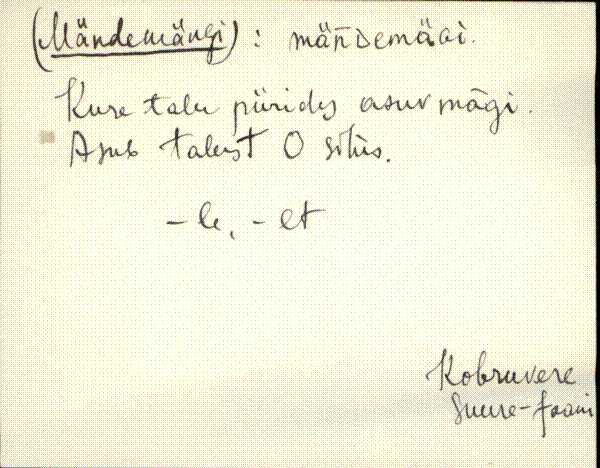 (Mändemängi) : mäńdemäGi.
Kure talu piirides asuv mägi.
Asub talust O sihis.
-le, -et
Kobruvere
Suure-Jaani